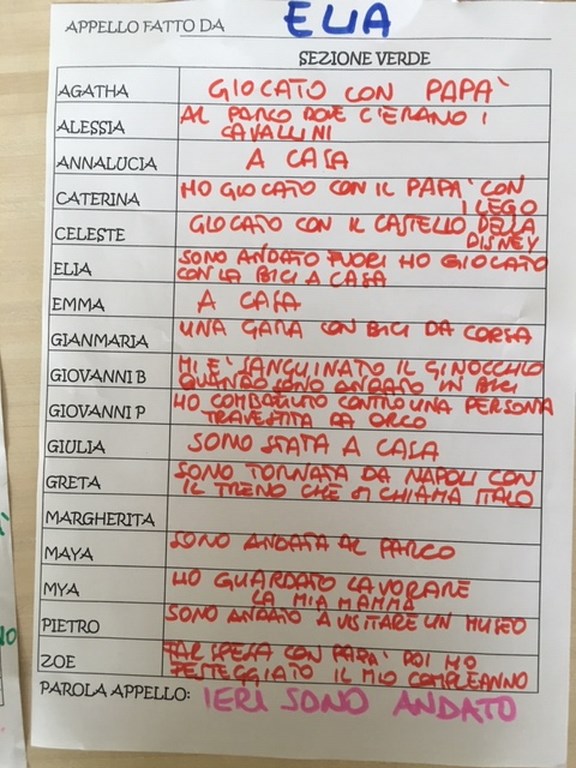 APPELLO FATTO DA ELIA
SEZIONE VERDE
AGATHA GIOCATO CON PAPA'
ALESSIA AL PARCO DOVE C'ERANO I
CAVALLINI
ANNALUCIA A CASA
CATERINA HO GIOCATO CON IL PAPA' CON
I LEGO
CELESTE GIOCATO CON IL CASTELLO DELLA
DISNEY
ELIA SONO ANDATO FUORI HO GIOCATO
CON LA BICI A CASA
EMMA A CASA
GIANMARIA UNA GARA CON BICI DA CORSA
GIOVANNI B MI E' SANGUINATO IL GINOCCHIO
QUANDO SONO ANDATO IN BICI
GIOVANNI P HO COMBATTUTO CONTRO UNA PERSONA
TRAVESTITA DA ORCO
GIULIA SONO STATA A CASA
GRETA SONO TORNATA DA NAPOLI CON
IL TRENO CHE SI CHIAMA ITALO
MARGHERITA
MAYA SONO ANDATA AL PARCO
MYA HO GUARDATO LAVORARE
LA MIA MAMMA
PIETRO SONO ANDATO A VISITARE UN MUSEO
ZOE FAR SPESA CON PAPA' POI HO
FESTEGGIATO IL MIO COMPLEANNO
PAROLA APPELLO: IERI SONO ANDATO